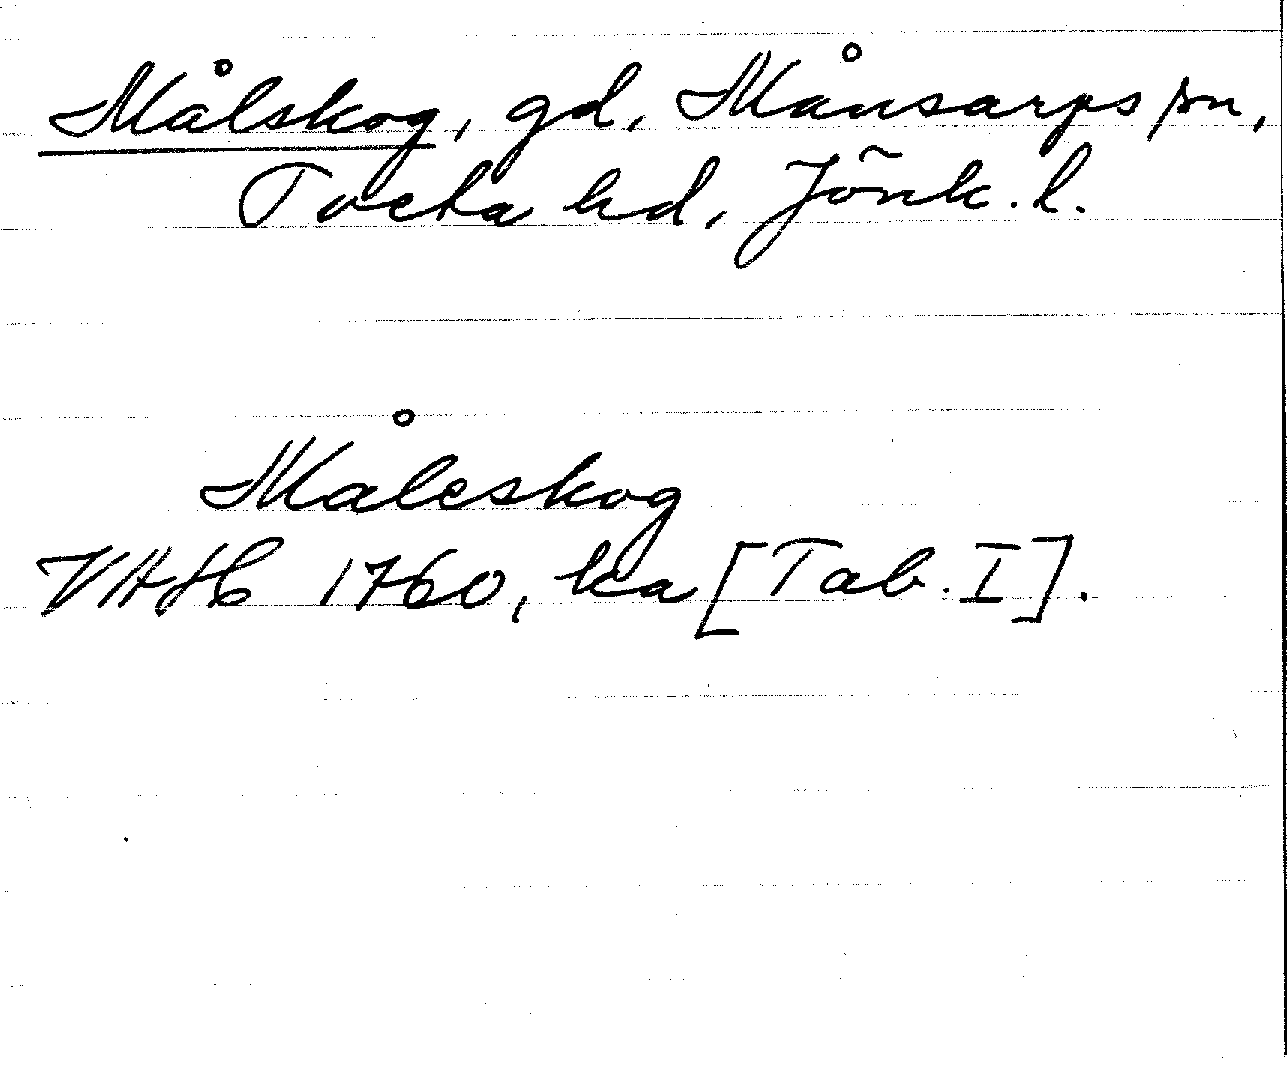 Målskog, gd, Månsarps sn,
Tveta hd, Jönk. l.
Måleskog
VAH 1760, ka [Tab. I].